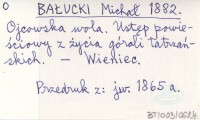 O BAŁUCKI Michał 1882.
Ojcowska wola. Ustęp powie-
ściowy z życia górali tatrzań-
skich. — Wieniec.
Przedruk z: jw. 1865 a.